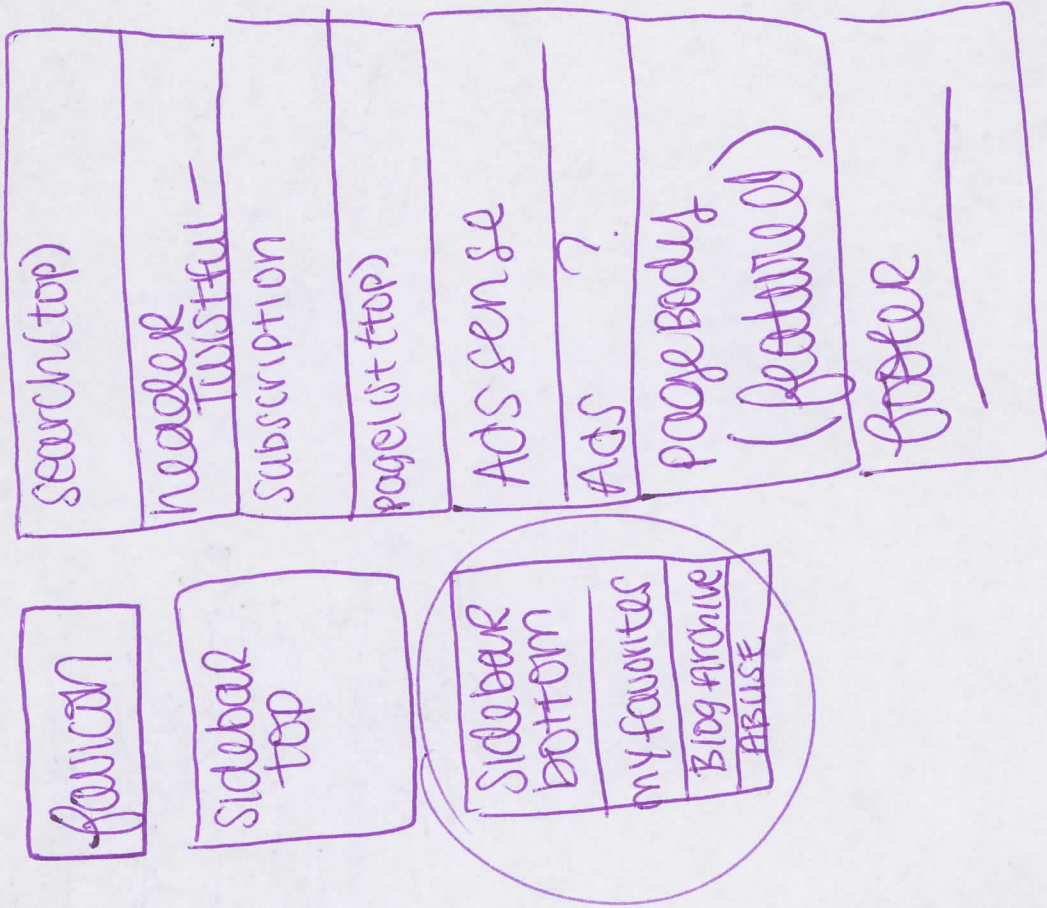 favicon
sidebar
top
Sidebar
bottom
my favorites
Blog Archive
ABUSE
search(top)
header
Twistful -
subscription
pagelist (top)
AdSSense
Ads ?
page Body
(featured)
footer